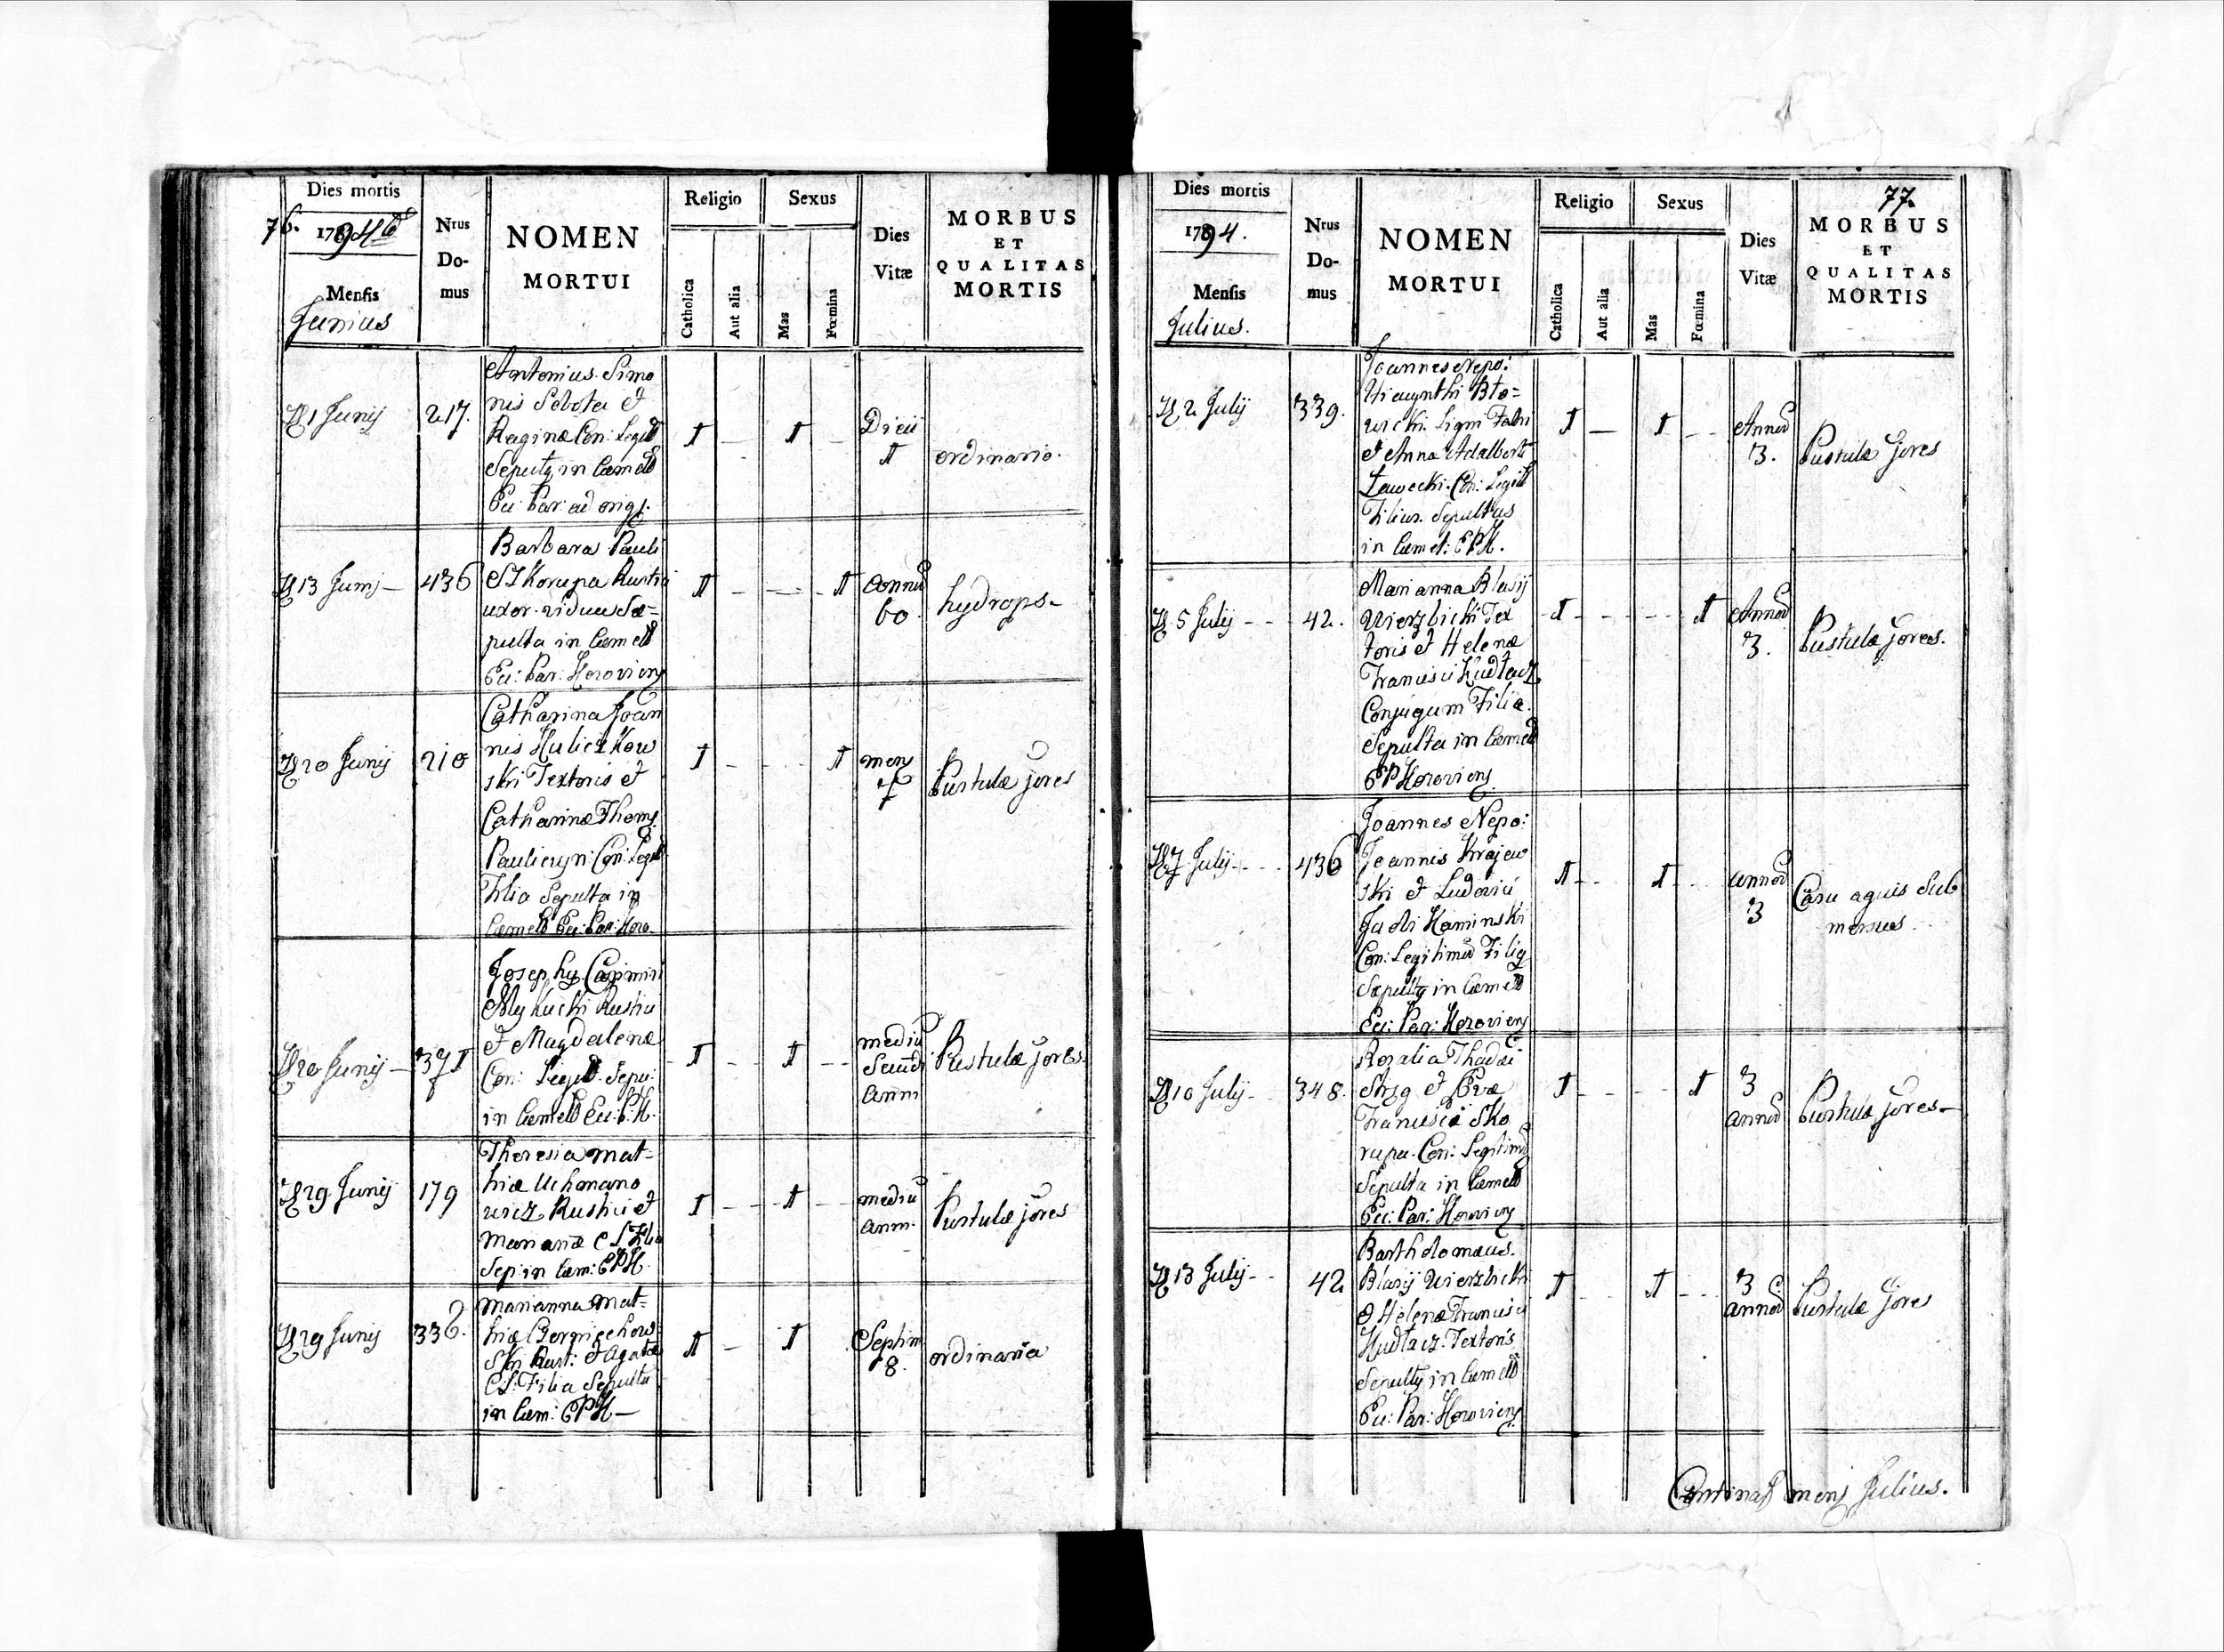 76.
Dies mortis
1794to
Mensis
Junius
Nrus
Do-
mus
NOMEN
MORTUI
Religio
Catholica
Aut alia
Sexus
Mas
Fœmina
Dies
Vitæ
MORBUS
ET
QUALITAS
MORTIS
1 Junij
217.
Antonius Simo
nis Sobota et
Reginæ Con: Legit
Sepultq in Cæmet
Ecc: Par: ad orig.
1
1
Diei
1
ordinario.
13 Junij
436
Barbara Pauli
Skorupa Rustici
uxor vidua Se=
pulta in Cæmet
Ecc: Par: Koroviens
1
1
Annor
60
hydrops
20 Junij
210
Catharina Joan
nis Kuliczkow
ski Textoris et
Catharinæ Thoms
Paulicryn: Con: Legit
Filia Sepulta in
Cæmet Ecc: Par: Koro
1
1
mens
7
Pustulæ jores
20 Junij
371
Josephq Casimiri
Mykucki Rustici
et Magdalenæ
Con: Legit. Sepu:
in Cæmet Ecc: P: K.
1
1
mediu
Secudi
anni
Pustulæ jores
29 Junij
179
Theresia Mat=
hiæ Uchmano
wicz Rustici et
Marianæ C L Filia
Sep: in Cæm: EPK.
1
1
mediu
anni.
Pustulæ jores
29 Junij
336.
Marianna Mat=
hiæ
ski Rust: et Agatæ
C L: Filia Sepulta
in Cæm: EPK
1
1
Septim
8.
ordinaria
77.
Dies mortis
1794.
Mensis
Julius.
Nrus
Do-
mus
NOMEN
MORTUI
Religio
Catholica
Aut alia
Sexus
Mas
Fœmina
Dies
Vitæ
MORBUS
ET
QUALITAS
MORTIS
2 July
339.
Joannes Nepo:
Hiacynthi Bto=
wicki Lign Fabri
et Anna Adalberti
Ławecki. Con: Legit
Filius. Sepultus
in Cæmet: EPK.
1
1
Annor
3.
Pustulæ jores
5 July
42.
Marianna Blasij
Wierzbicki Tex
toris et Helenæ
Francisci Kudłacz
Conjugum Filia.
Sepulta in Cæmet
EPKoroviens
1
1
Annor
3.
Pustulæ jores.
7 July
436
Joannes Nepo:
Joannis Krajew
ski et Ludovici
Kaminski
Con: Legitimor Filiq
Sepultq in Cæmet
Ecc: Par: Koroviens
1
1
annor
3
Casu aquis Sub
mersus
10 July
348.
Rozalia Thadei
et Evæ
Francisci Sko
rupa. Con: Legitimor
Sepulta in Cæmet
Ecc: Par: Koroviens
1
1
3
annor
Pustulæ jores
13 July
42
Bartholomæus.
Blasij Wierzbicki
et Helenæ Francisci
Kudłacz. Textoris
Sepultq in Cæmet
Ecc: Par: Koroviens
1
1
3
annor
Pustulæ jores
Continat mens Julius.